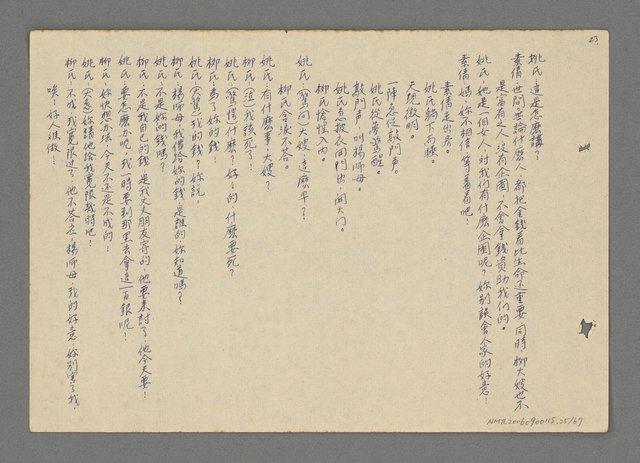 23
姚氏：這是怎麼講？
素倩：世間無論什麼人，都把金錢看比生命还重要，同時，柳大嫂也不
是富有之人，沒有企圖，不會拿錢資助我们的。
姚氏：她是一個女人，对我们有什麼企圖呢？妳別誤會人家的好意！
素倩：媽，妳不相信，等着看吧！
素倩走出房。
姚氏躺下而睡。
天現微明。
一陣急促敲門声。
姚氏從夢驚醒。
敲門声，叫楊师母。
姚氏急披衣開門出，開大门。
柳氏愴惶入内。
姚氏：（驚问）大嫂，這麼早？！
柳氏含淚不答。
姚氏：有什麼事，大嫂？
柳氏：（泣）我該死了！
姚氏：（驚愕）什麼？好好的，什麼要死？
柳氏：為了妳的錢！
姚氏：（大驚）我的錢？妳説！
柳氏：楊师母，我借給妳的錢，是誰的妳知道嗎？
姚氏：不是妳的錢嗎？
柳氏：不是我自己的錢，是我丈夫朋友寄的，他要來討了，他今天要！
姚氏：要怎麼办呢，我一時要到那里去拿這一百銀呢！
柳氏：妳快想办法，今天不还是不成的！
姚氏：（大急）妳請他給我寬限幾時吧！
柳氏：不成，我寬限过了，他不答应，楊师母，我的好意，妳別害了我，
唉！好人难做！
NMTL20060900115.25/67